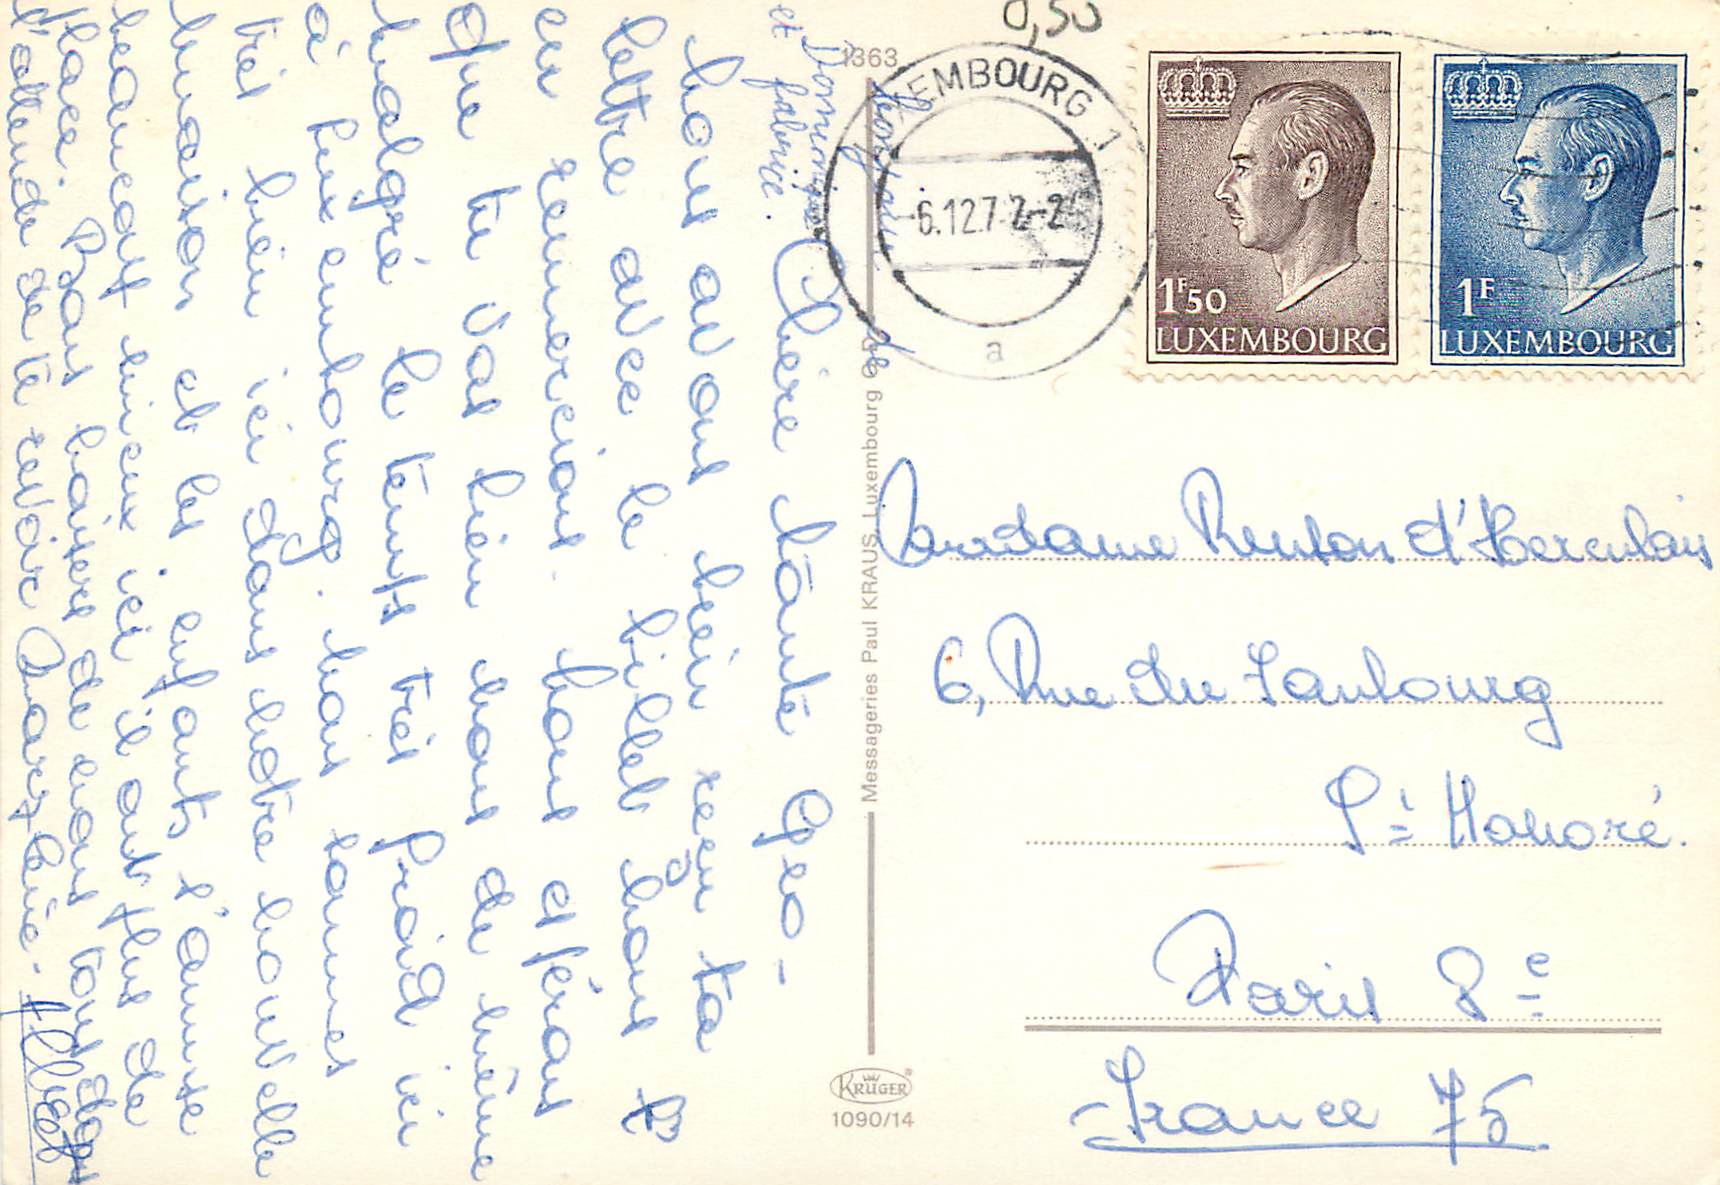 Chère tante Geo-
nous avons bien reçu ta
lettre avec le billet nous t'
en remercions. nous espérons
que tu vas bien nous de même
malgré le temps très froid ici
à Luxembourg. nous sommes
très bien ici dans notre nouvelle
maison et les enfants s'amuse
beaucoup mieux ici il ont plus de
place. Bons baisers de nous tous dans
l'attende de te revoir
et Dominique
fabrice.
1363
Messageries Paul KRAUS, Luxembourg
KRÜGER®
1090/14
0,50
LUXEMBOURG 1
-6.12.7 2-2
a
1F50
LUXEMBOURG
1F
LUXEMBOURG
Madame Renson d'Herculais
6, Rue du Faubourg
St Honoré.
Paris 8e
France 75